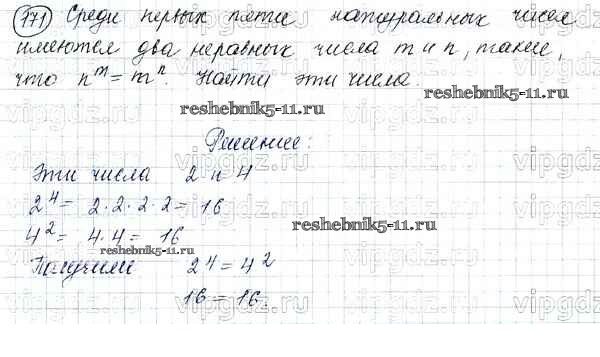 771) Среди первых пяти натуральных чисел
имеются два неравных числа m и n, такие,
что n^m = m^n. Найти эти числа.
reshebnik5-11.ru
reshebnik5-11.ru
Решение:
Эти числа 2 и 4
2^4 = 2·2·2·2 = 16
reshebnik5-11.ru
4^2 = 4·4 = 16
reshebnik5-11.ru
Получим 2^4 = 4^2
16 = 16.
vipgdz.ru